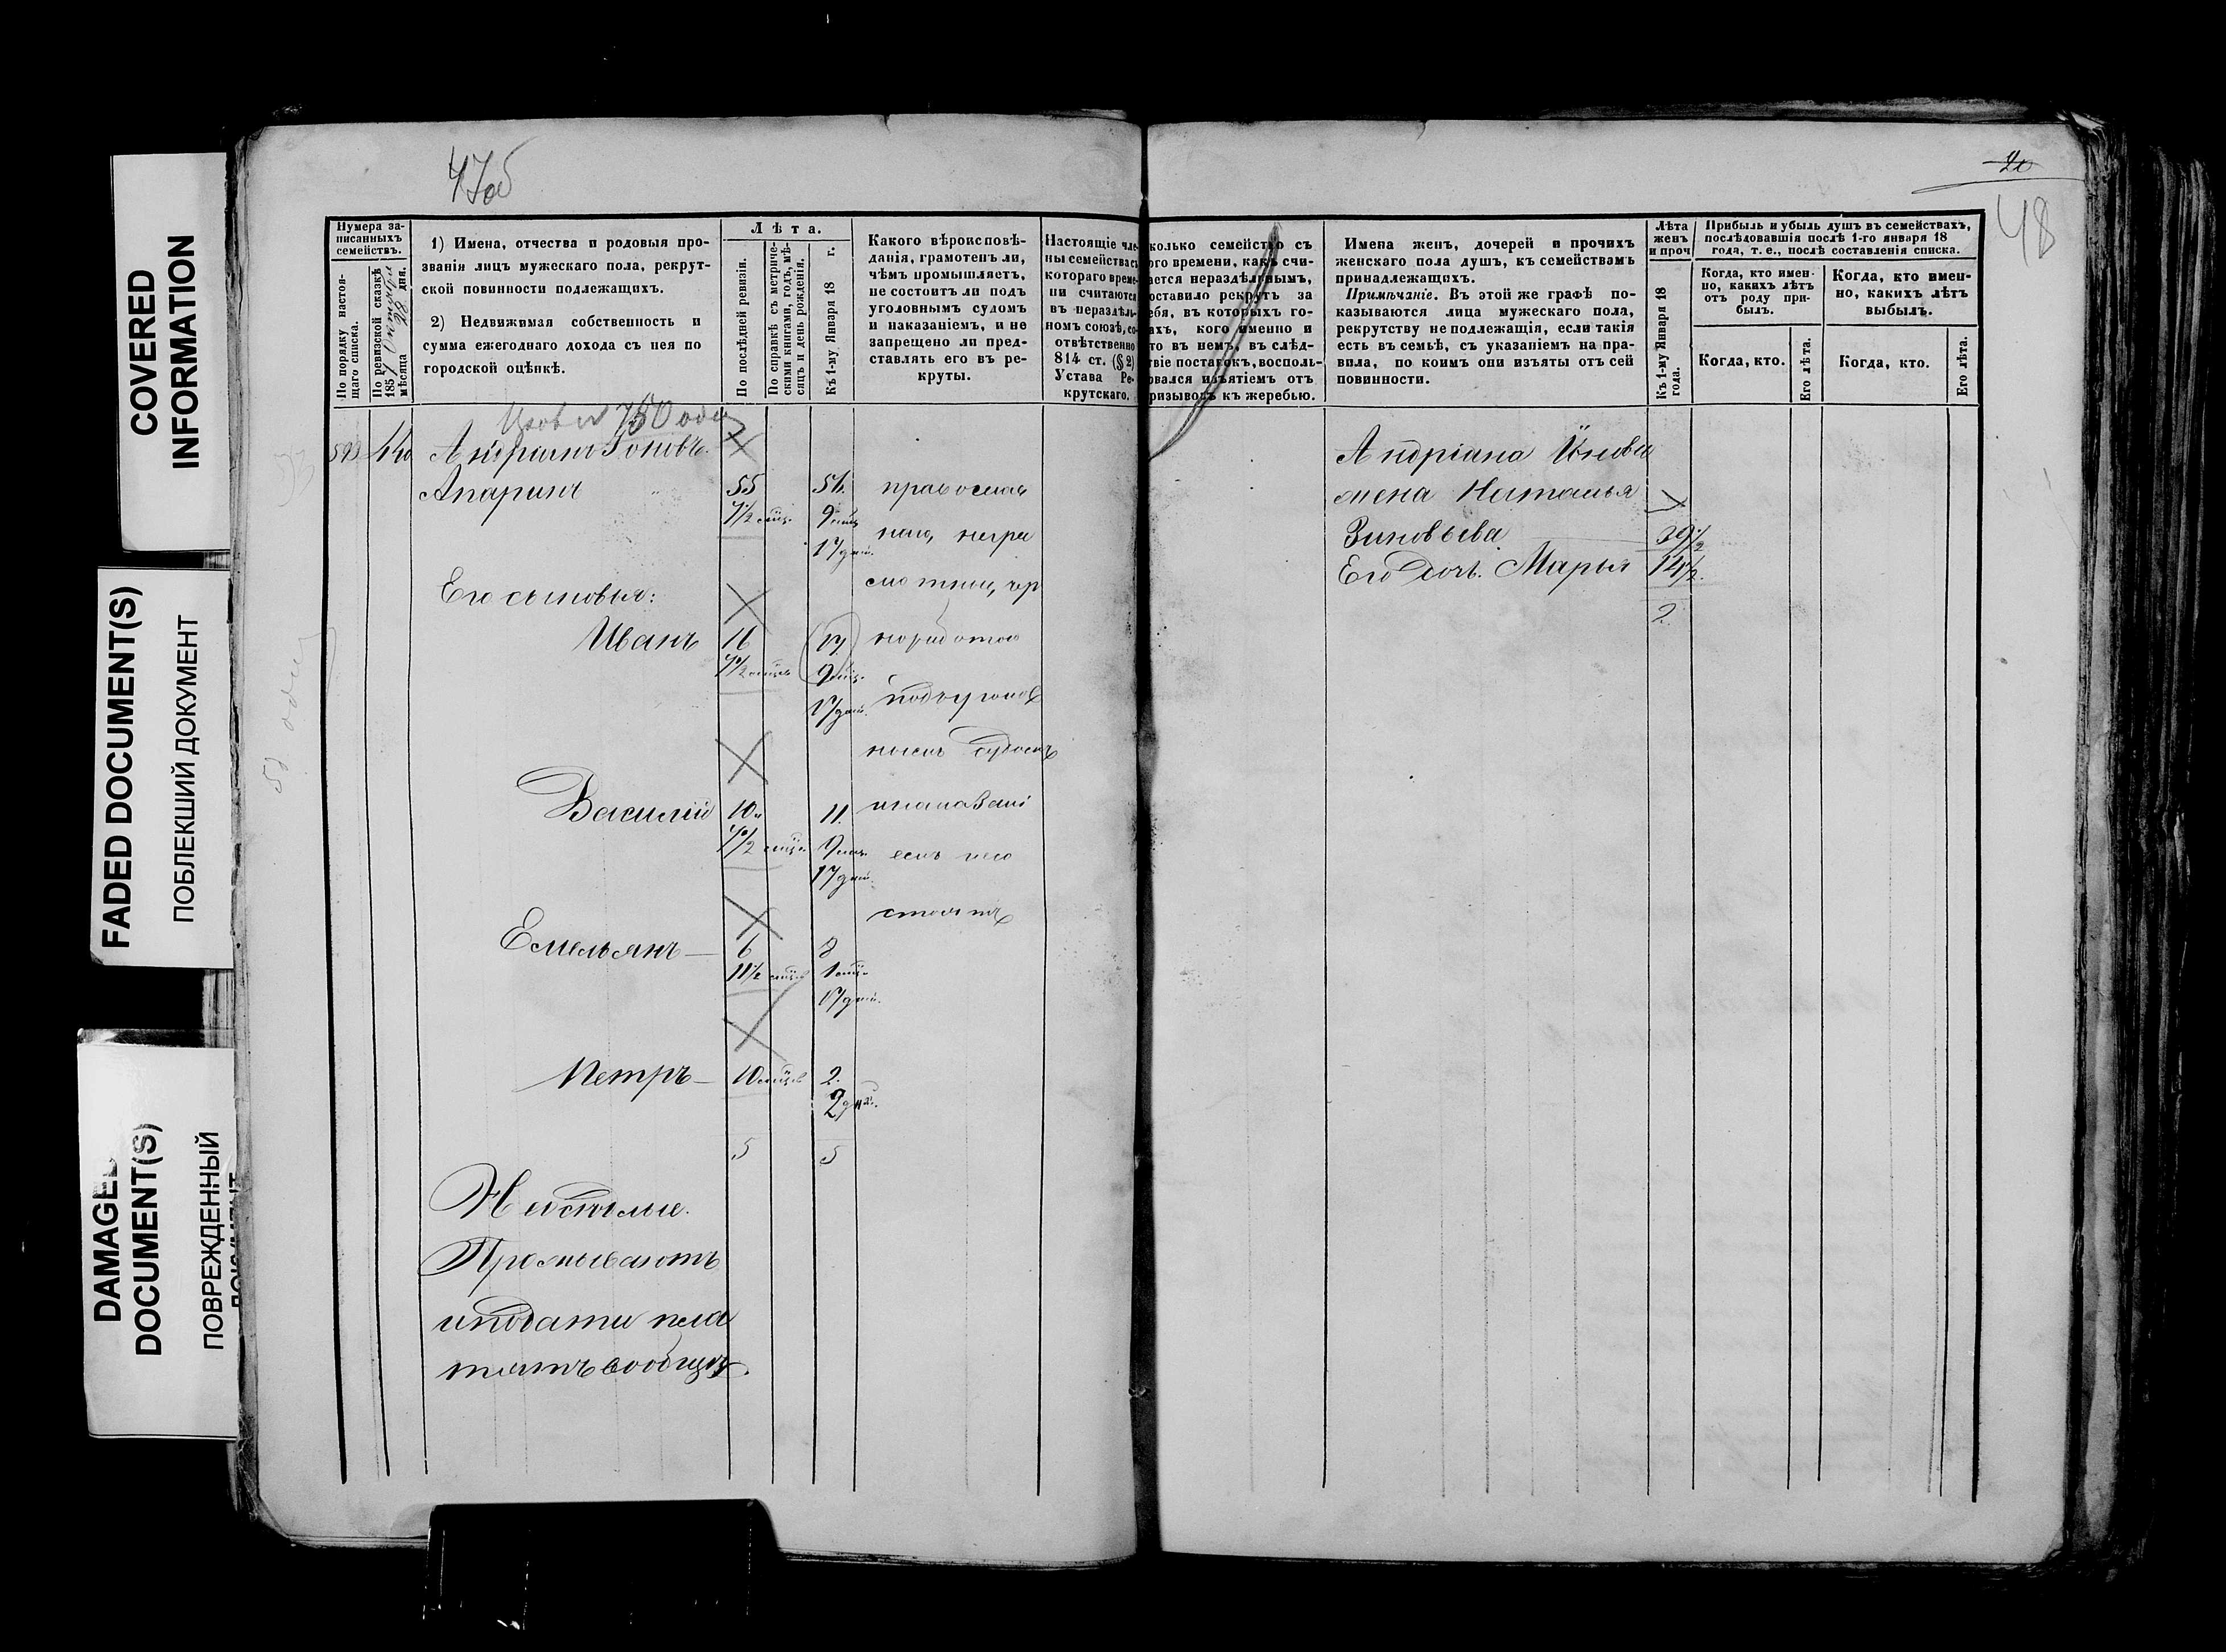 COVERED
INFORMATION
FADED DOCUMENT(S)
ПОБЛЕКШИЙ ДОКУМЕНТ
DAMAGED
DOCUMENT(S)
ПОВРЕЖДЕННЫЙ
47об
20
48
Нумера за-
писанныхъ
семействъ.
По порядку настоя-
щаго списка.
По ревизской сказкѣ
1857
мѣсяца 28 дня.
1) Имена, отчества и родовыя про-
званія лицъ мужескаго пола, рекрут-
ской повинности подлежащихъ.
2) Недвижимая собственность и
сумма ежегоднаго дохода съ нея по
городской оцѣнкѣ.
Лѣта.
По послѣдней ревизіи.
По справкѣ съ метриче-
скими книгами, годъ, мѣ-
сяцъ и день рожденія.
Къ 1-му Января 18 г.
Какого вѣроисповѣ-
данія, грамотенъ ли,
чѣмъ промышляетъ,
не состоитъ ли подъ
уголовнымъ судомъ
и наказаніемъ, и не
запрещено ли пред-
ставлять его въ ре-
круты.
Настоящіе чле-
ны семейства съ
котораго време-
ни считаются
въ нераздѣль-
номъ союзѣ, со-
отвѣтственно
814 ст. (§ 2)
Устава Ре-
крутскаго.
колько семейство съ
ого времени, какъ счи-
ается нераздѣльнымъ,
оставило рекрутъ за
ебя, въ которыхъ го-
ахъ, кого именно и
то въ немъ, въ слѣд-
твіе поставокъ, восполь-
овался изъятіемъ отъ
ризывовъ къ жеребью.
Имена женъ, дочерей и прочихъ
женскаго пола душъ, къ семействамъ
принадлежащихъ.
Примѣчаніе. Въ этой же графѣ по-
казываются лица мужескаго пола,
рекрутству не подлежащія, если такія
есть въ семьѣ, съ указаніемъ на пра-
вила, по коимъ они изъяты отъ сей
повинности.
Лѣта
женъ
и проч
Къ 1-му Января 18
года.
Прибыль и убыль душъ въ семействахъ,
послѣдовавшія послѣ 1-го января 18
года, т. е., послѣ составленія списка.
Когда, кто имен-
но, какихъ лѣтъ
отъ роду при-
былъ.
Когда, кто имен-
но, какихъ лѣтъ
выбылъ.
Когда, кто.
Его лѣта.
Когда, кто.
Его лѣта.
Андріанъ Іоновъ.
Апаринъ 55 56. православ
7½ мцъ. 9 мцъ. наго, негра
17 дней. мотны, чер
Его сыновья:
Иванъ 16 17 норабочіе
7½ мцъ. 9 мцъ.
17 дней. подъуголов
нымъ судомъ
Василій 10 11. инаказані
7½ мцъ. 9 мцъ. емъ не со
17 дней. стоятъ
Емельянъ 6 8
11½ мцъ. 1 мцъ.
17 дней.
Петръ 10 мцъ. 2.
2 дня.
5 5
Проживаютъ
иподати пла
тятъ вообще.
Андріана Іонова
жена Наталья
Зиновьева 39½
Его дочь. Марья 14½.
2.